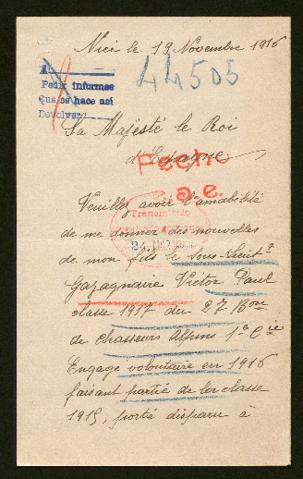 Nice le 19 Novembre 1916
44505
Pedir informes
Que se hace así
Devolver
Sa Majesté le Roi
d'Espagne
Fecho
Veuillez avoir l'amabilité
de me donner des nouvelles
Transmitido
de mon fils le Sous-Lieutt
Gazagnaire Victor Paul
classe 1917 du 27 Bon
de Chasseurs Alpins 1e Cie
Engagé volontaire en 1916
faisant partie de la classe
1915, porté disparu à